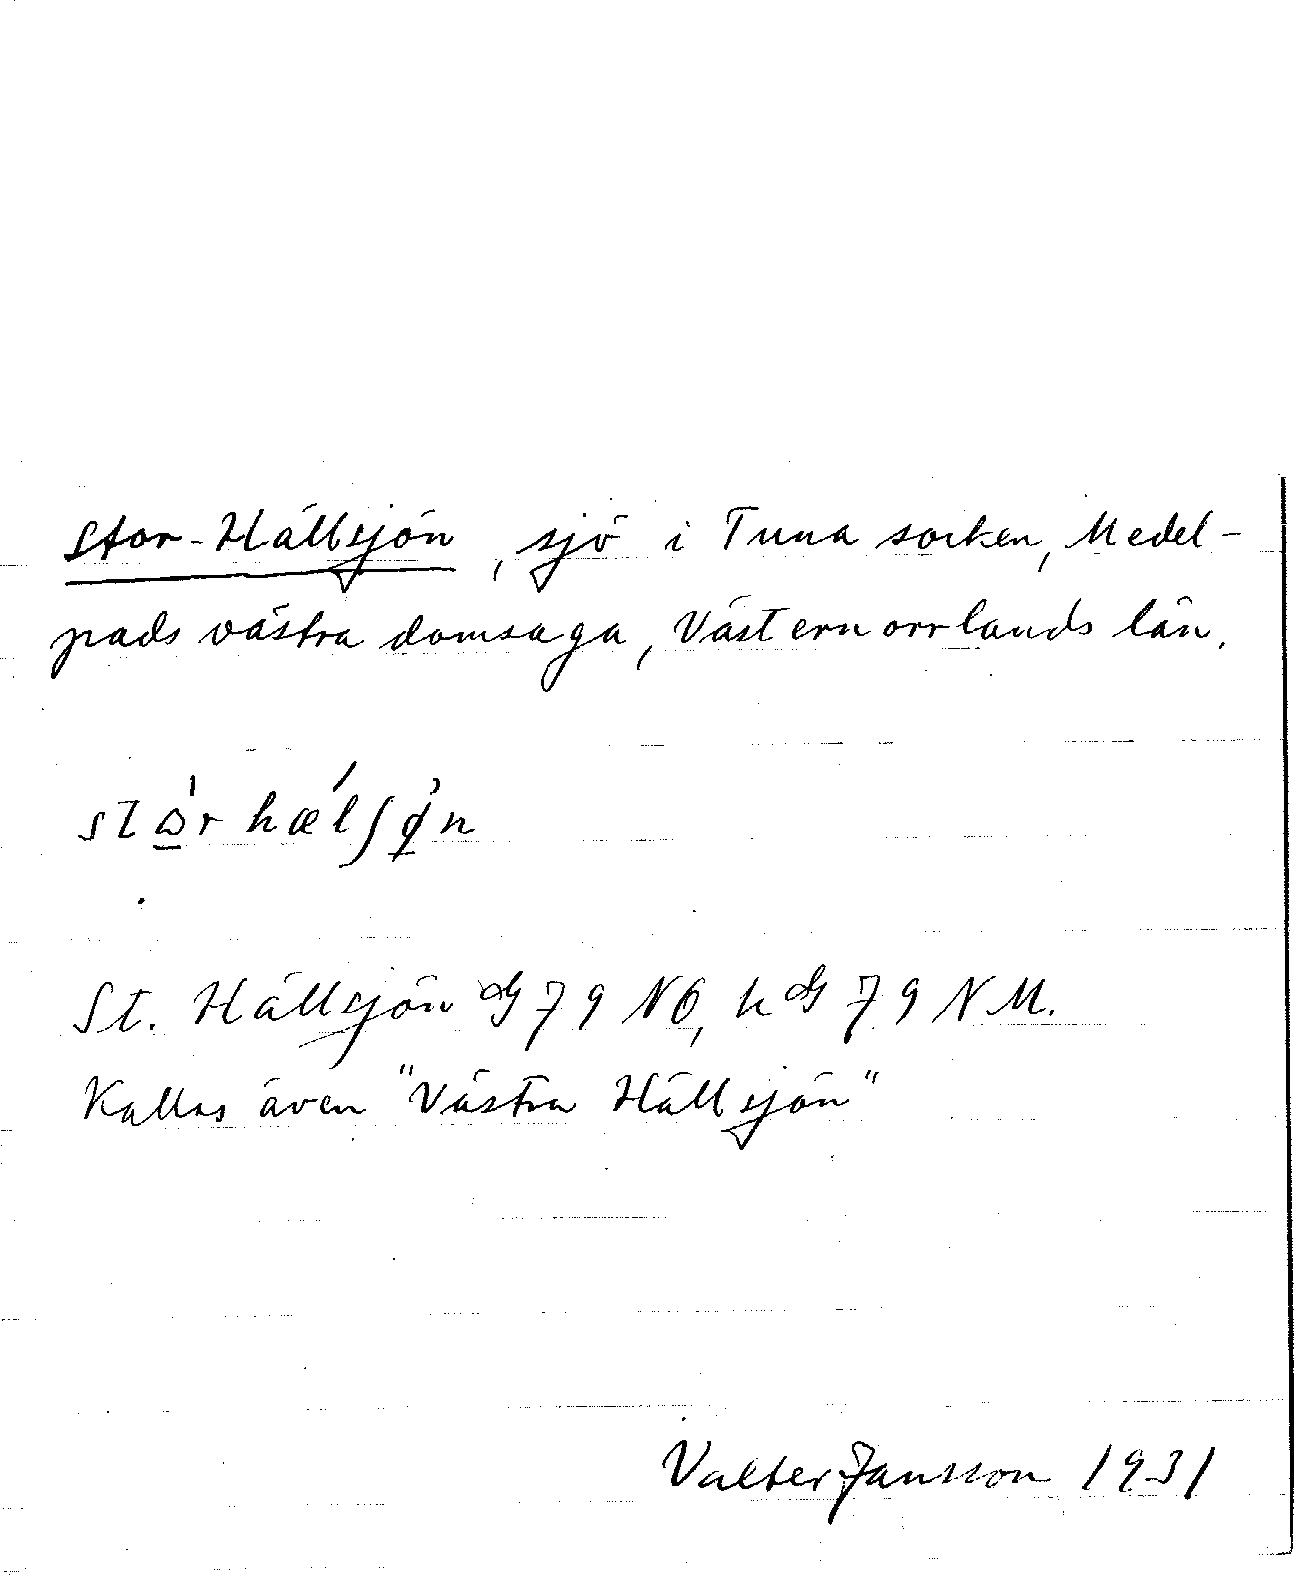 Stor-Hällsjön, sjö i Tuna socken, Medel-
pads västra domsaga, Västernorrlands län.
St. Hällsjön 79 NÖ, 79 NM.
Kallas även "Västra Hällsjön"
Valter Jansson 1931